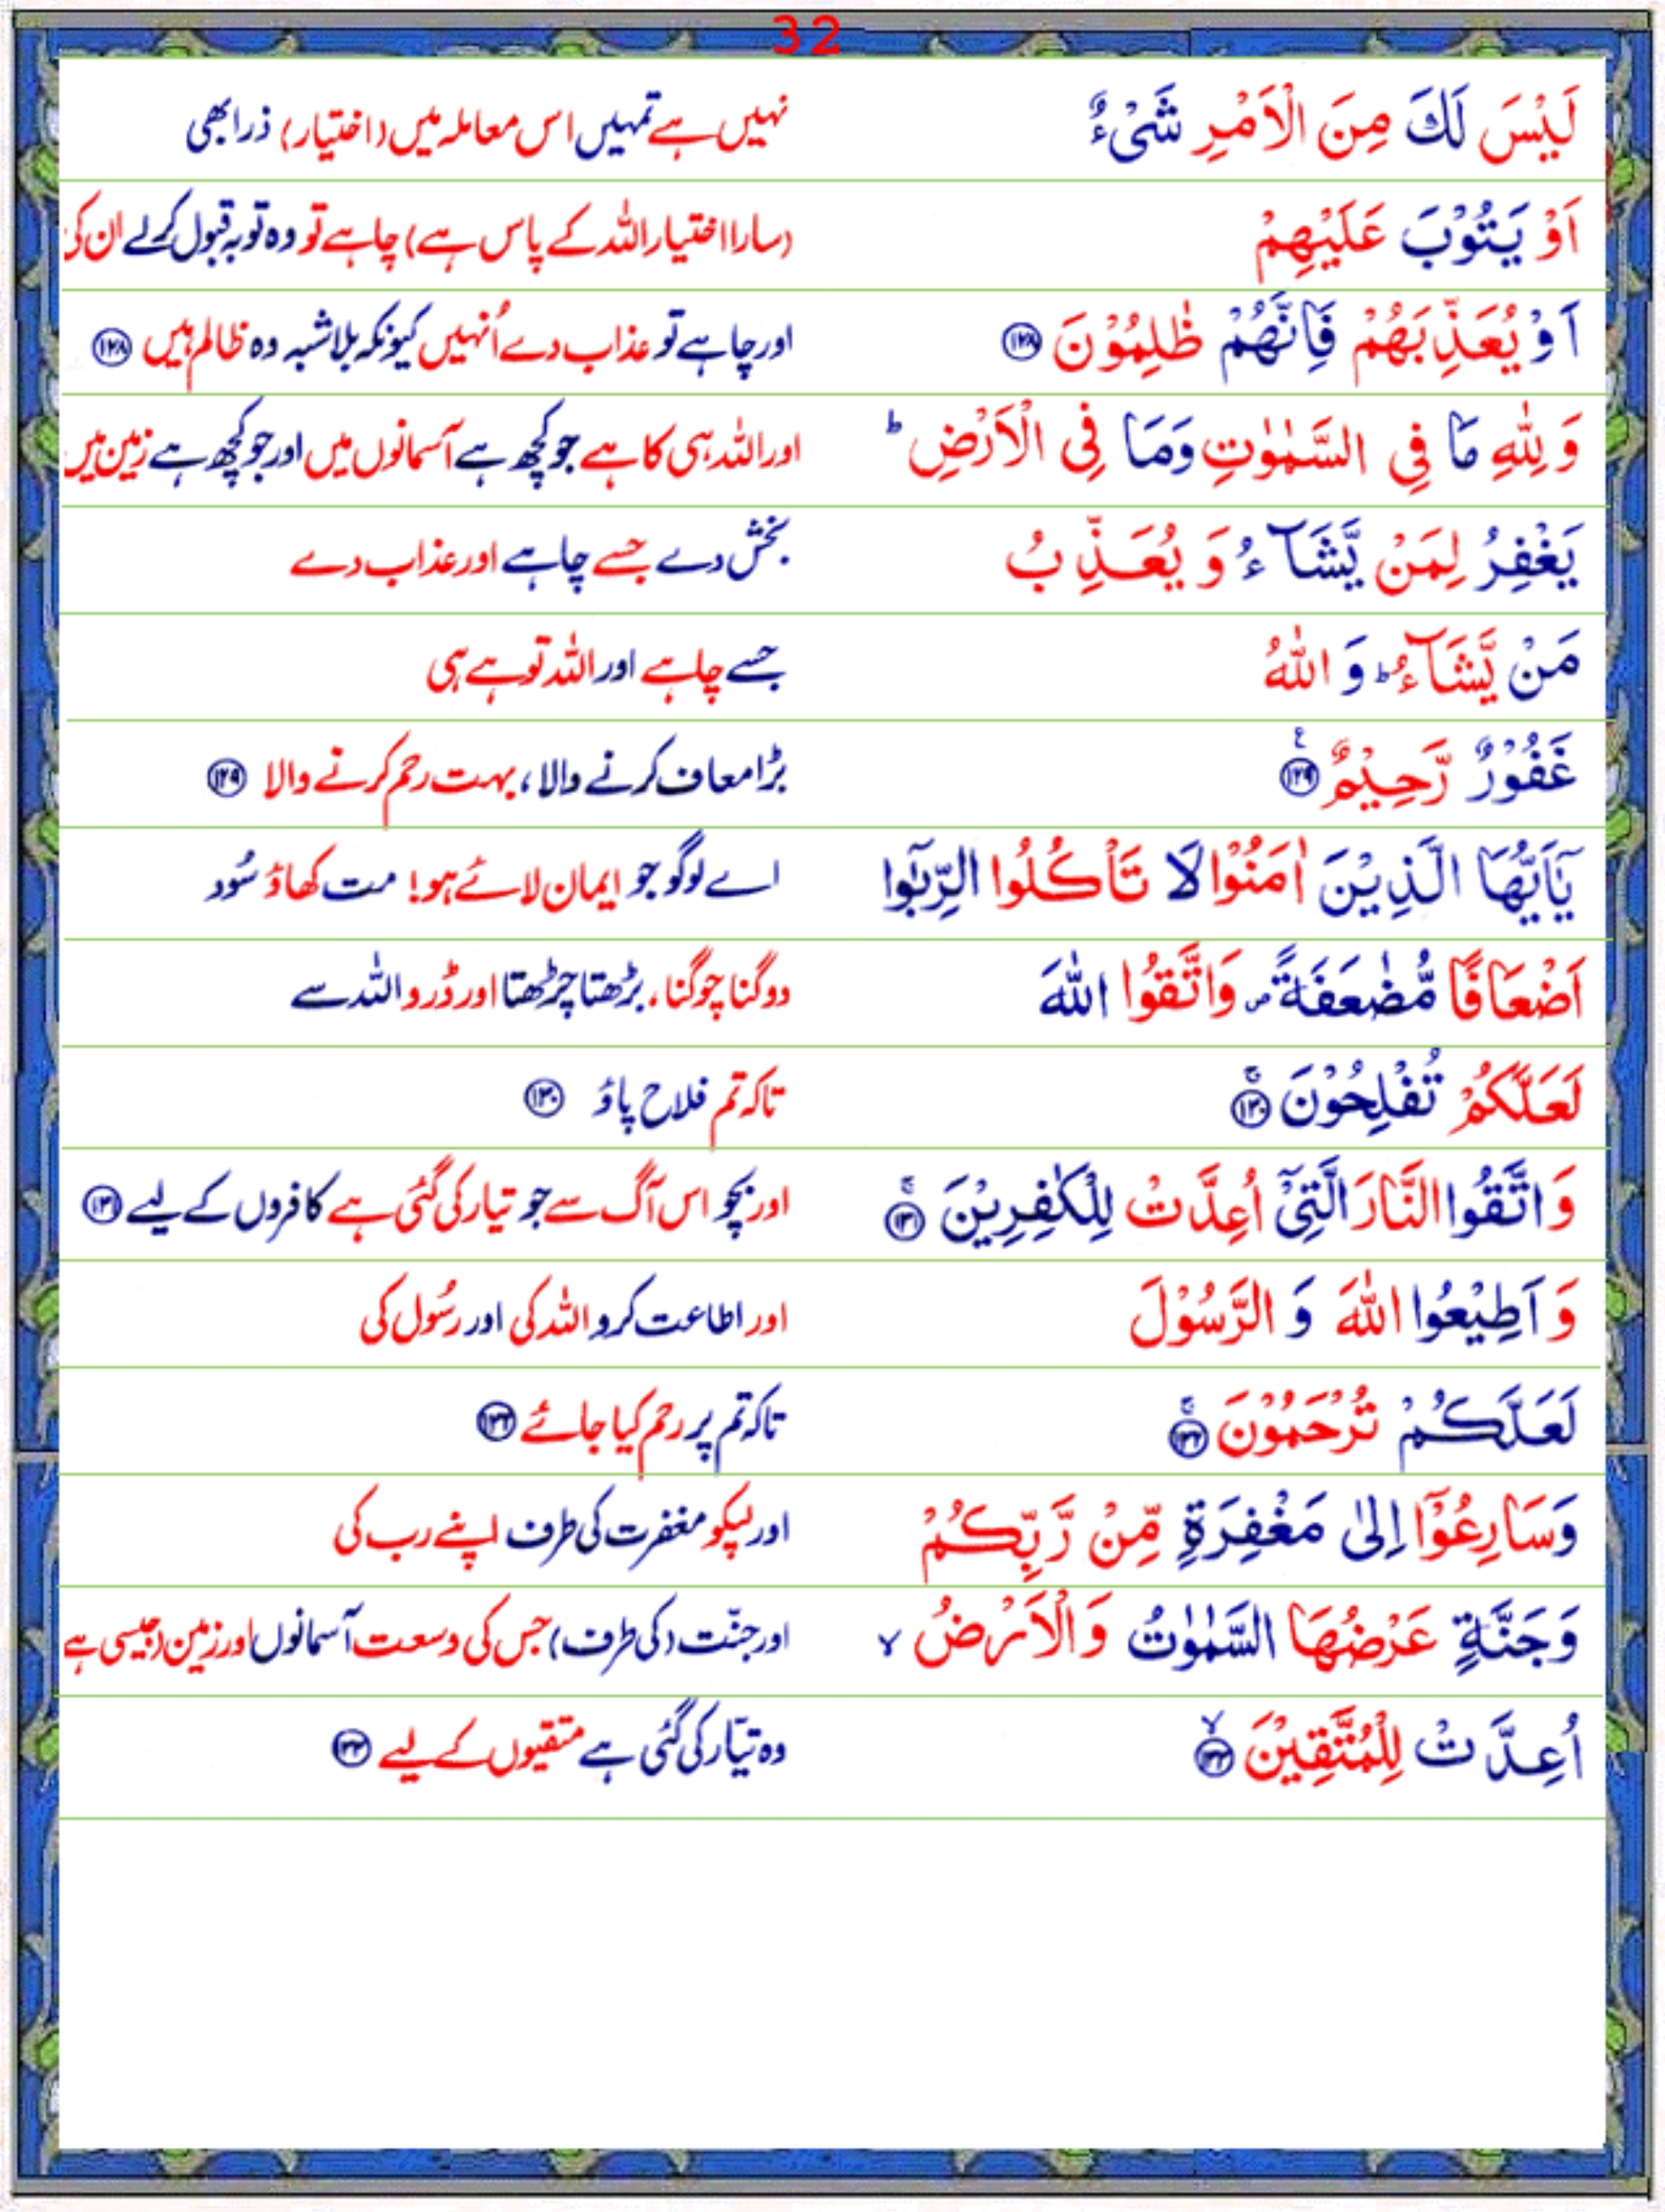 32
لَيْسَ لَكَ مِنَ الْاَمْرِ شَیْءٌ نہیں ہے تمہیں اس معاملہ میں (اختیار) ذرا بھی
اَوْ يَتُوْبَ عَلَيْهِمْ (سارا اختیار اللہ کے پاس ہے) چاہے تو وہ توبہ قبول کرلے ان کی
اَوْ يُعَذِّبَهُمْ فَاِنَّهُمْ ظٰلِمُوْنَ ⁠۱۲۸ اور چاہے تو عذاب دے اُنہیں کیونکہ بلاشبہ وہ ظالم ہیں ۱۲۸
وَ لِلّٰهِ مَا فِی السَّمٰوٰتِ وَمَا فِی الْاَرْضِ ؕ اور اللہ ہی کا ہے جو کچھ ہے آسمانوں میں اور جو کچھ ہے زمین میں
يَغْفِرُ لِمَنْ يَّشَآءُ وَ يُعَذِّبُ بخش دے جسے چاہے اور عذاب دے
مَنْ يَّشَآءُ ؕ وَ اللّٰهُ جسے چاہے اور اللہ تو ہے ہی
غَفُوْرٌ رَّحِيْمٌ ۱۲۹ ع بڑا معاف کرنے والا، بہت رحم کرنے والا ۱۲۹
يٰۤاَيُّهَا الَّذِيْنَ اٰمَنُوْا لَا تَاْكُلُوا الرِّبٰۤوا اے لوگو جو ایمان لائے ہو! مت کھاؤ سُود
اَضْعَافًا مُّضٰعَفَةً ۪ وَاتَّقُوا اللّٰهَ دوگنا چوگنا، بڑھتا چڑھتا اور ڈرو اللہ سے
لَعَلَّكُمْ تُفْلِحُوْنَ ۚ ۱۳۰ تاکہ تم فلاح پاؤ ۱۳۰
وَ اتَّقُوا النَّارَ الَّتِیْۤ اُعِدَّتْ لِلْكٰفِرِيْنَ ۚ ۱۳۱ اور بچو اس آگ سے جو تیار کی گئی ہے کافروں کے لیے ۱۳۱
وَ اَطِيْعُوا اللّٰهَ وَ الرَّسُوْلَ اور اطاعت کرو اللہ کی اور رسُول کی
لَعَلَّكُمْ تُرْحَمُوْنَ ۚ ۱۳۲ تاکہ تم پر رحم کیا جائے ۱۳۲
وَسَارِعُوْۤا اِلٰى مَغْفِرَةٍ مِّنْ رَّبِّكُمْ اور لپکو مغفرت کی طرف اپنے رب کی
وَجَنَّةٍ عَرْضُهَا السَّمٰوٰتُ وَالْاَرْضُ ۙ اور جنّت (کی طرف) جس کی وسعت آسمانوں اور زمین (جیسی) ہے
اُعِدَّتْ لِلْمُتَّقِيْنَ ۙ ۱۳۳ وہ تیّار کی گئی ہے متقیوں کے لیے ۱۳۳